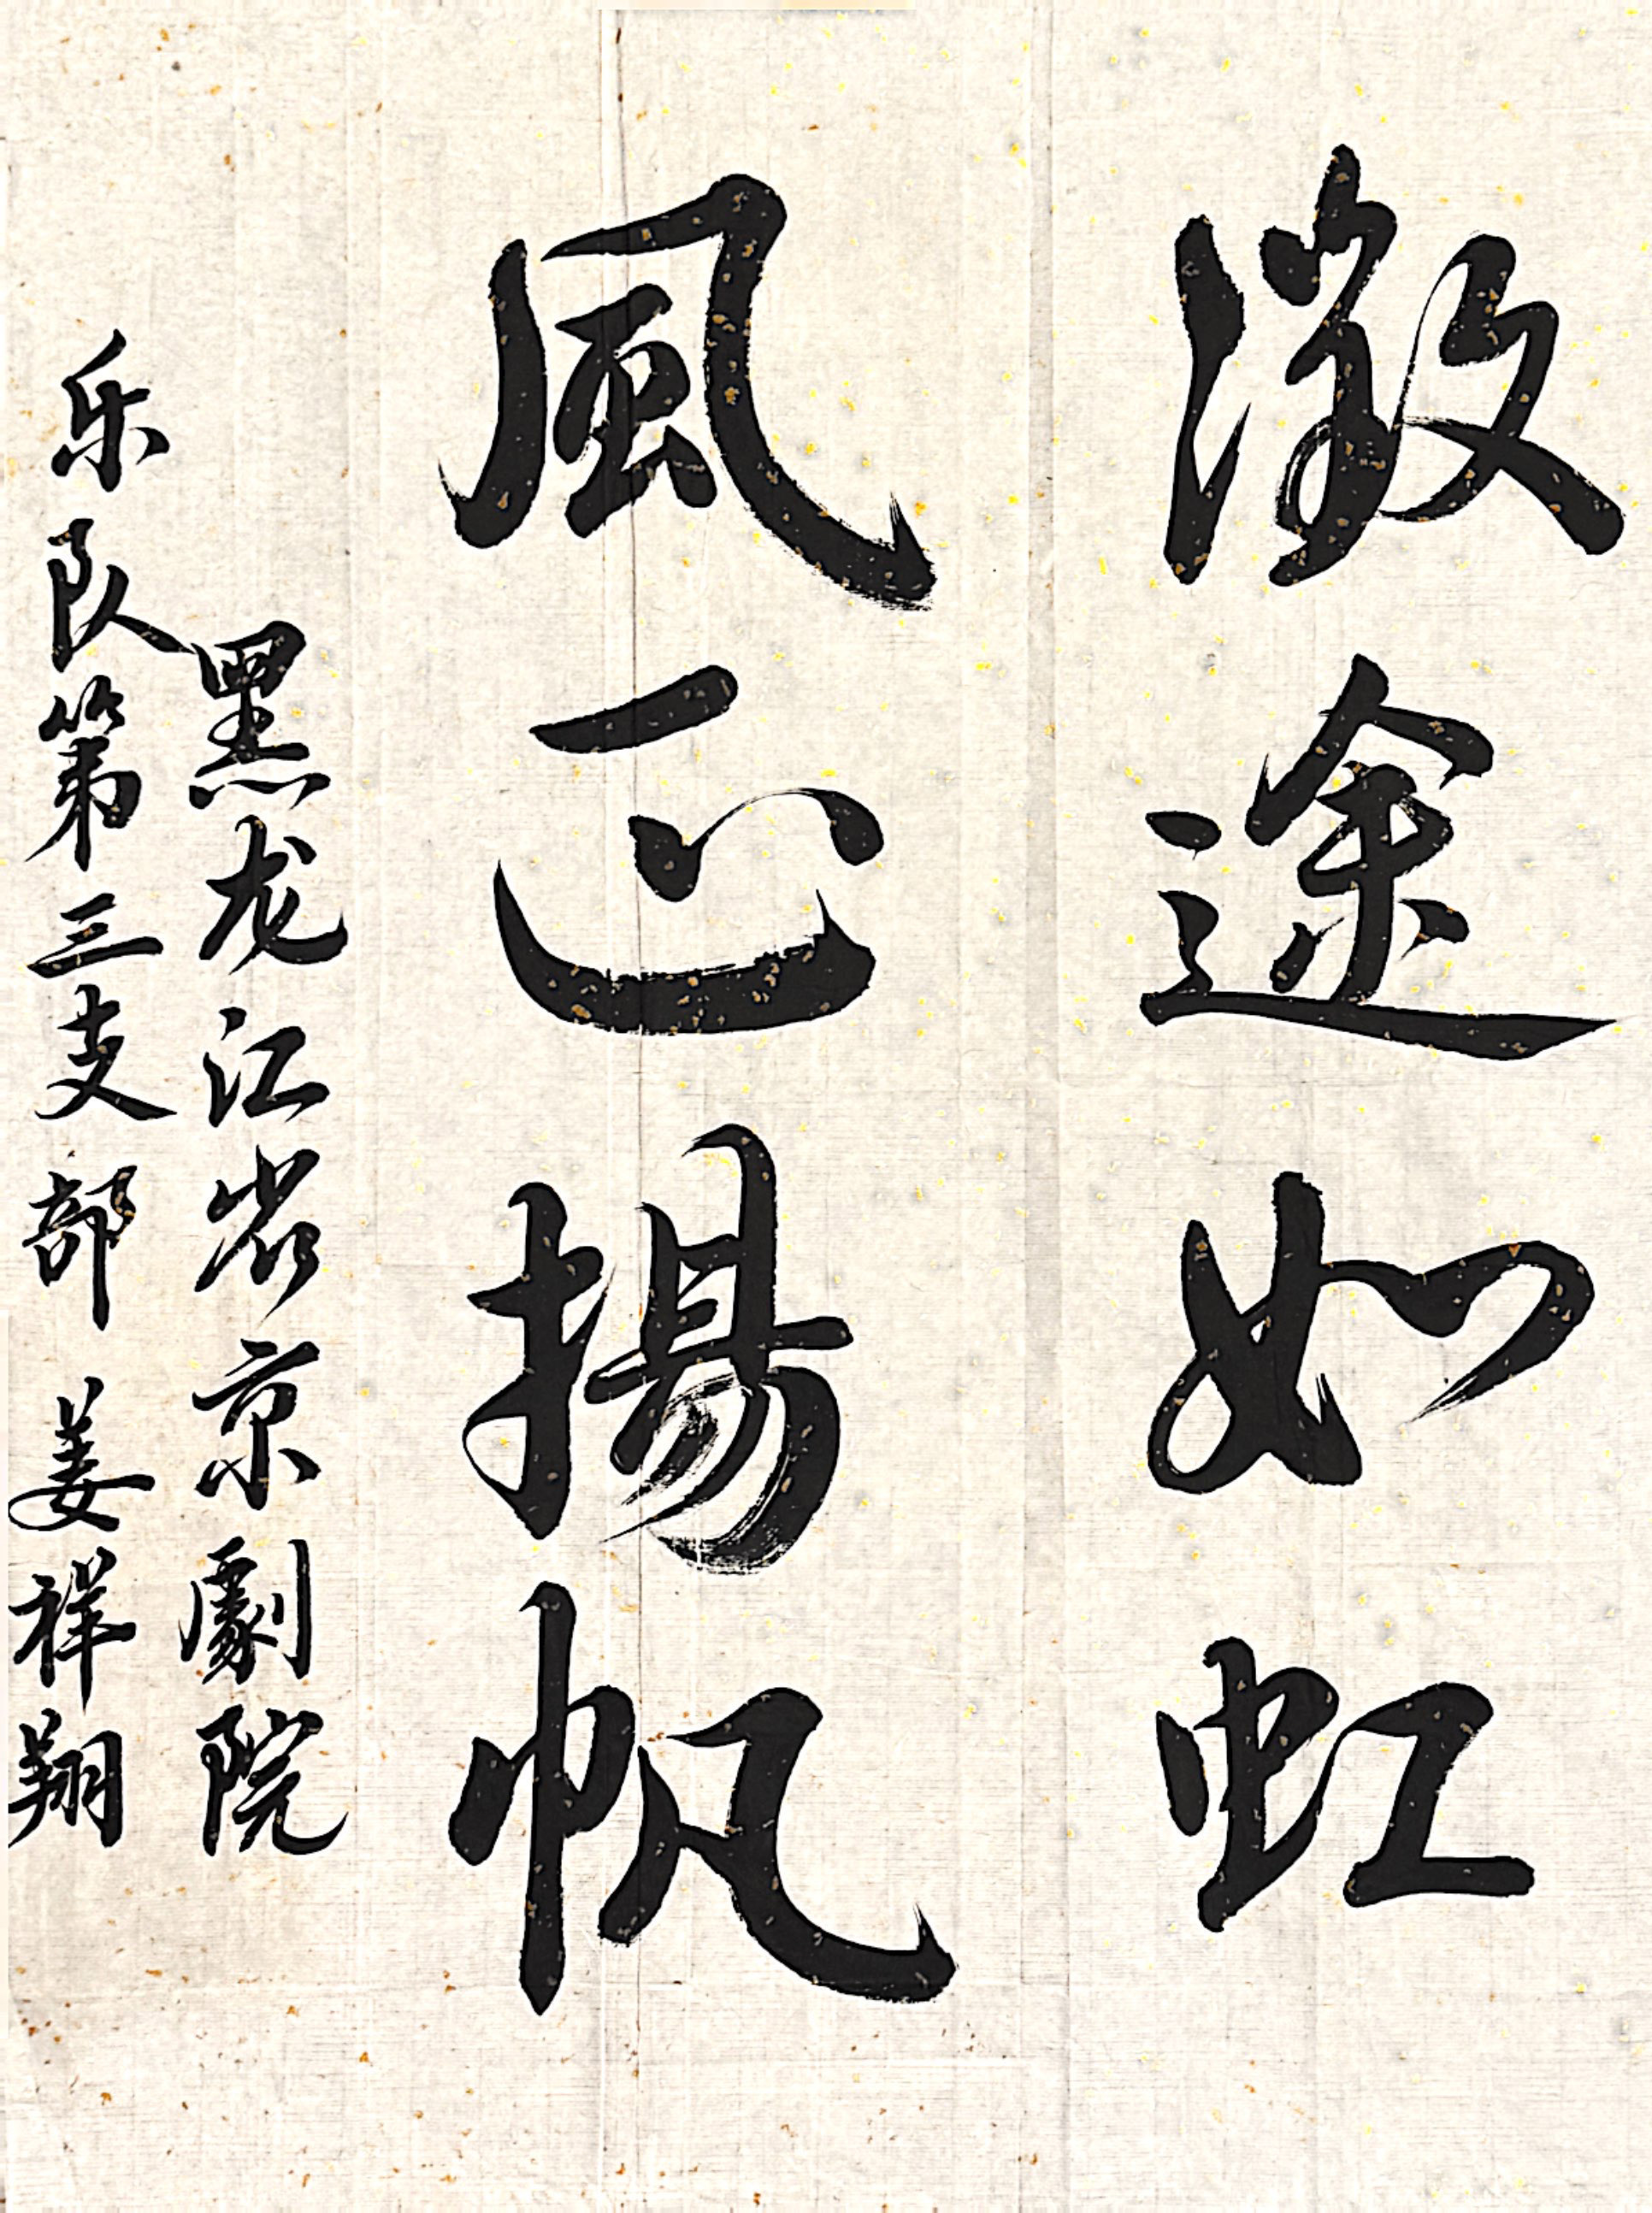 徵途如虹
風正揚帆
黑龙江省京劇院
乐队第三支部 姜祥翔